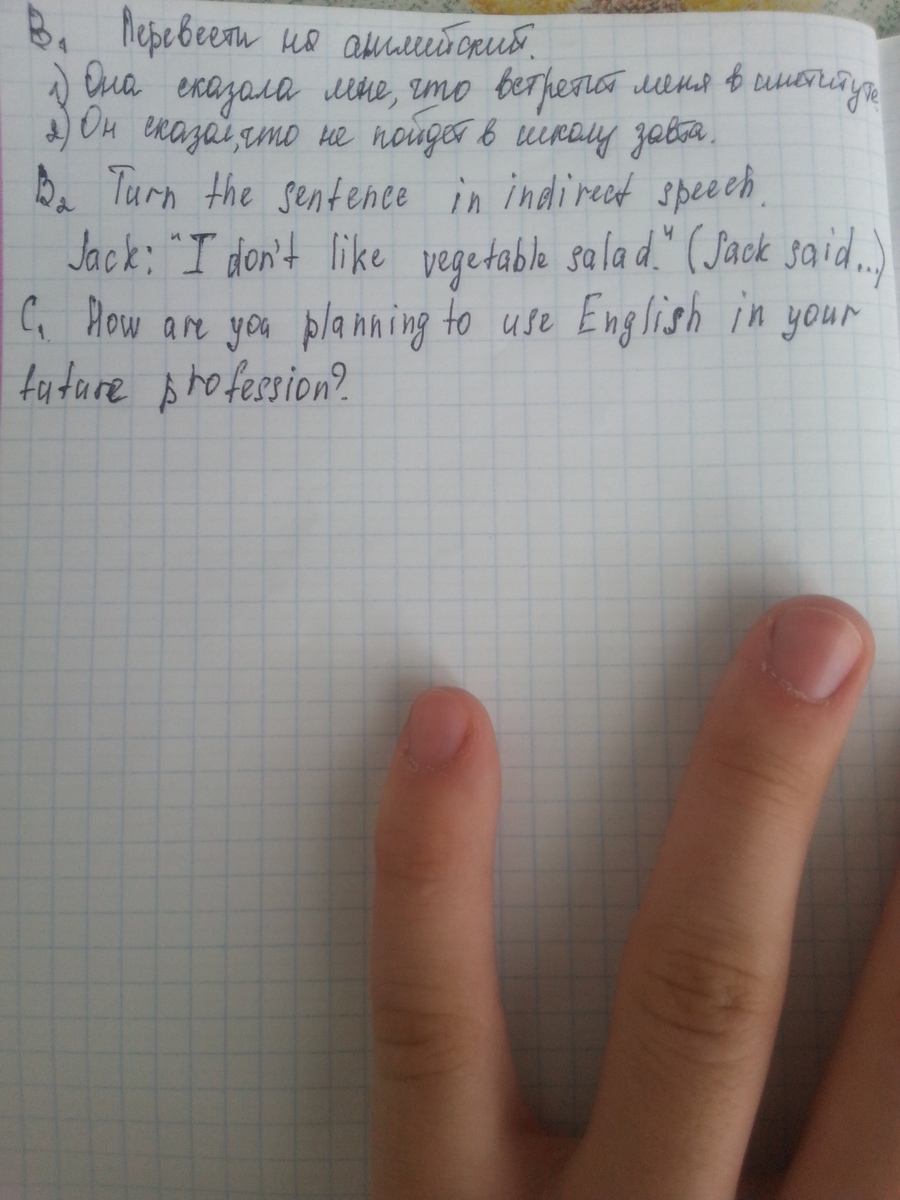 B1 Перевести на английский.
1) Она сказала мне, что встретит меня в институте.
2) Он сказал, что не пойдет в школу завта.
B2 Turn the sentence in indirect speech.
Jack: "I don't like vegetable salad." (Jack said...)
C1. How are you planning to use English in your
future profession?